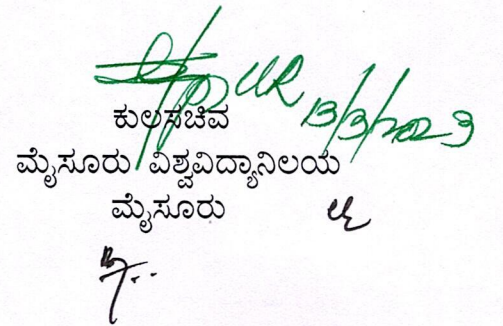 13/3/2023
ಕುಲಸಚಿವ
ಮೈಸೂರು ವಿಶ್ವವಿದ್ಯಾನಿಲಯ
ಮೈಸೂರು